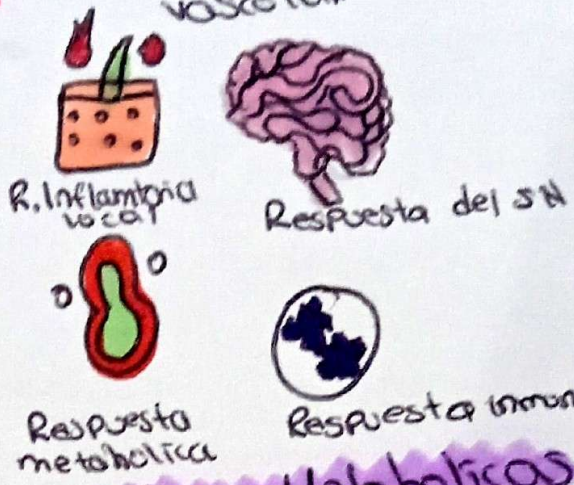 R. Inflamtoria
local
Respuesta del SN
Respuesta
metabolica
Respuesta inmun